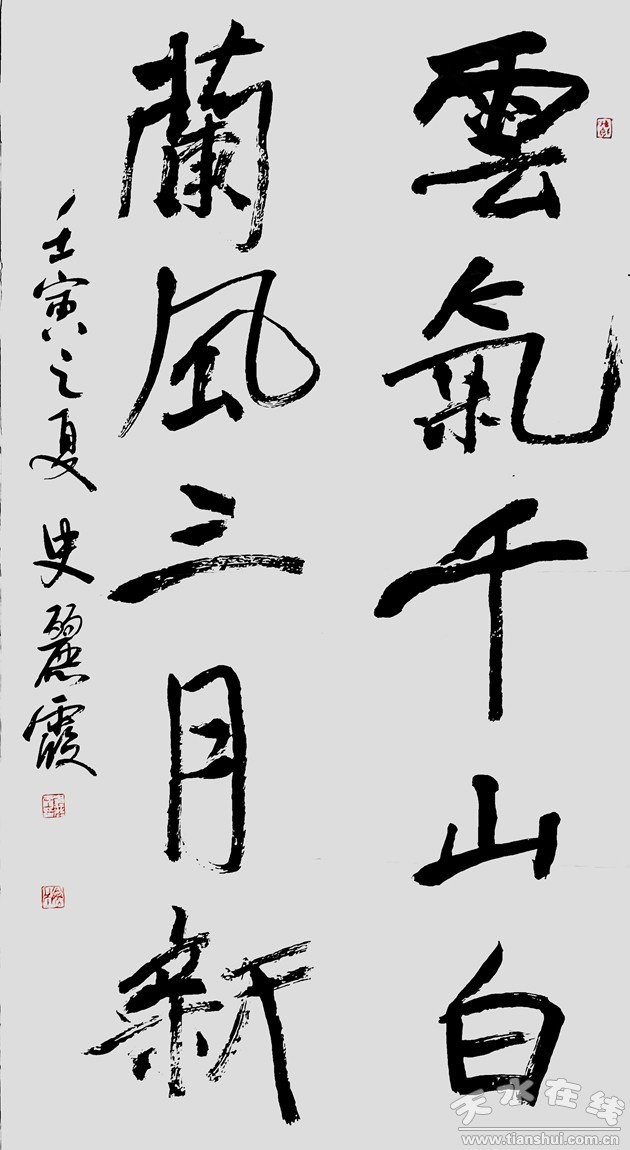 雲氣千山白
蘭風三月新
壬寅之夏 史麗霞
天水在线
www.tianshui.com.cn